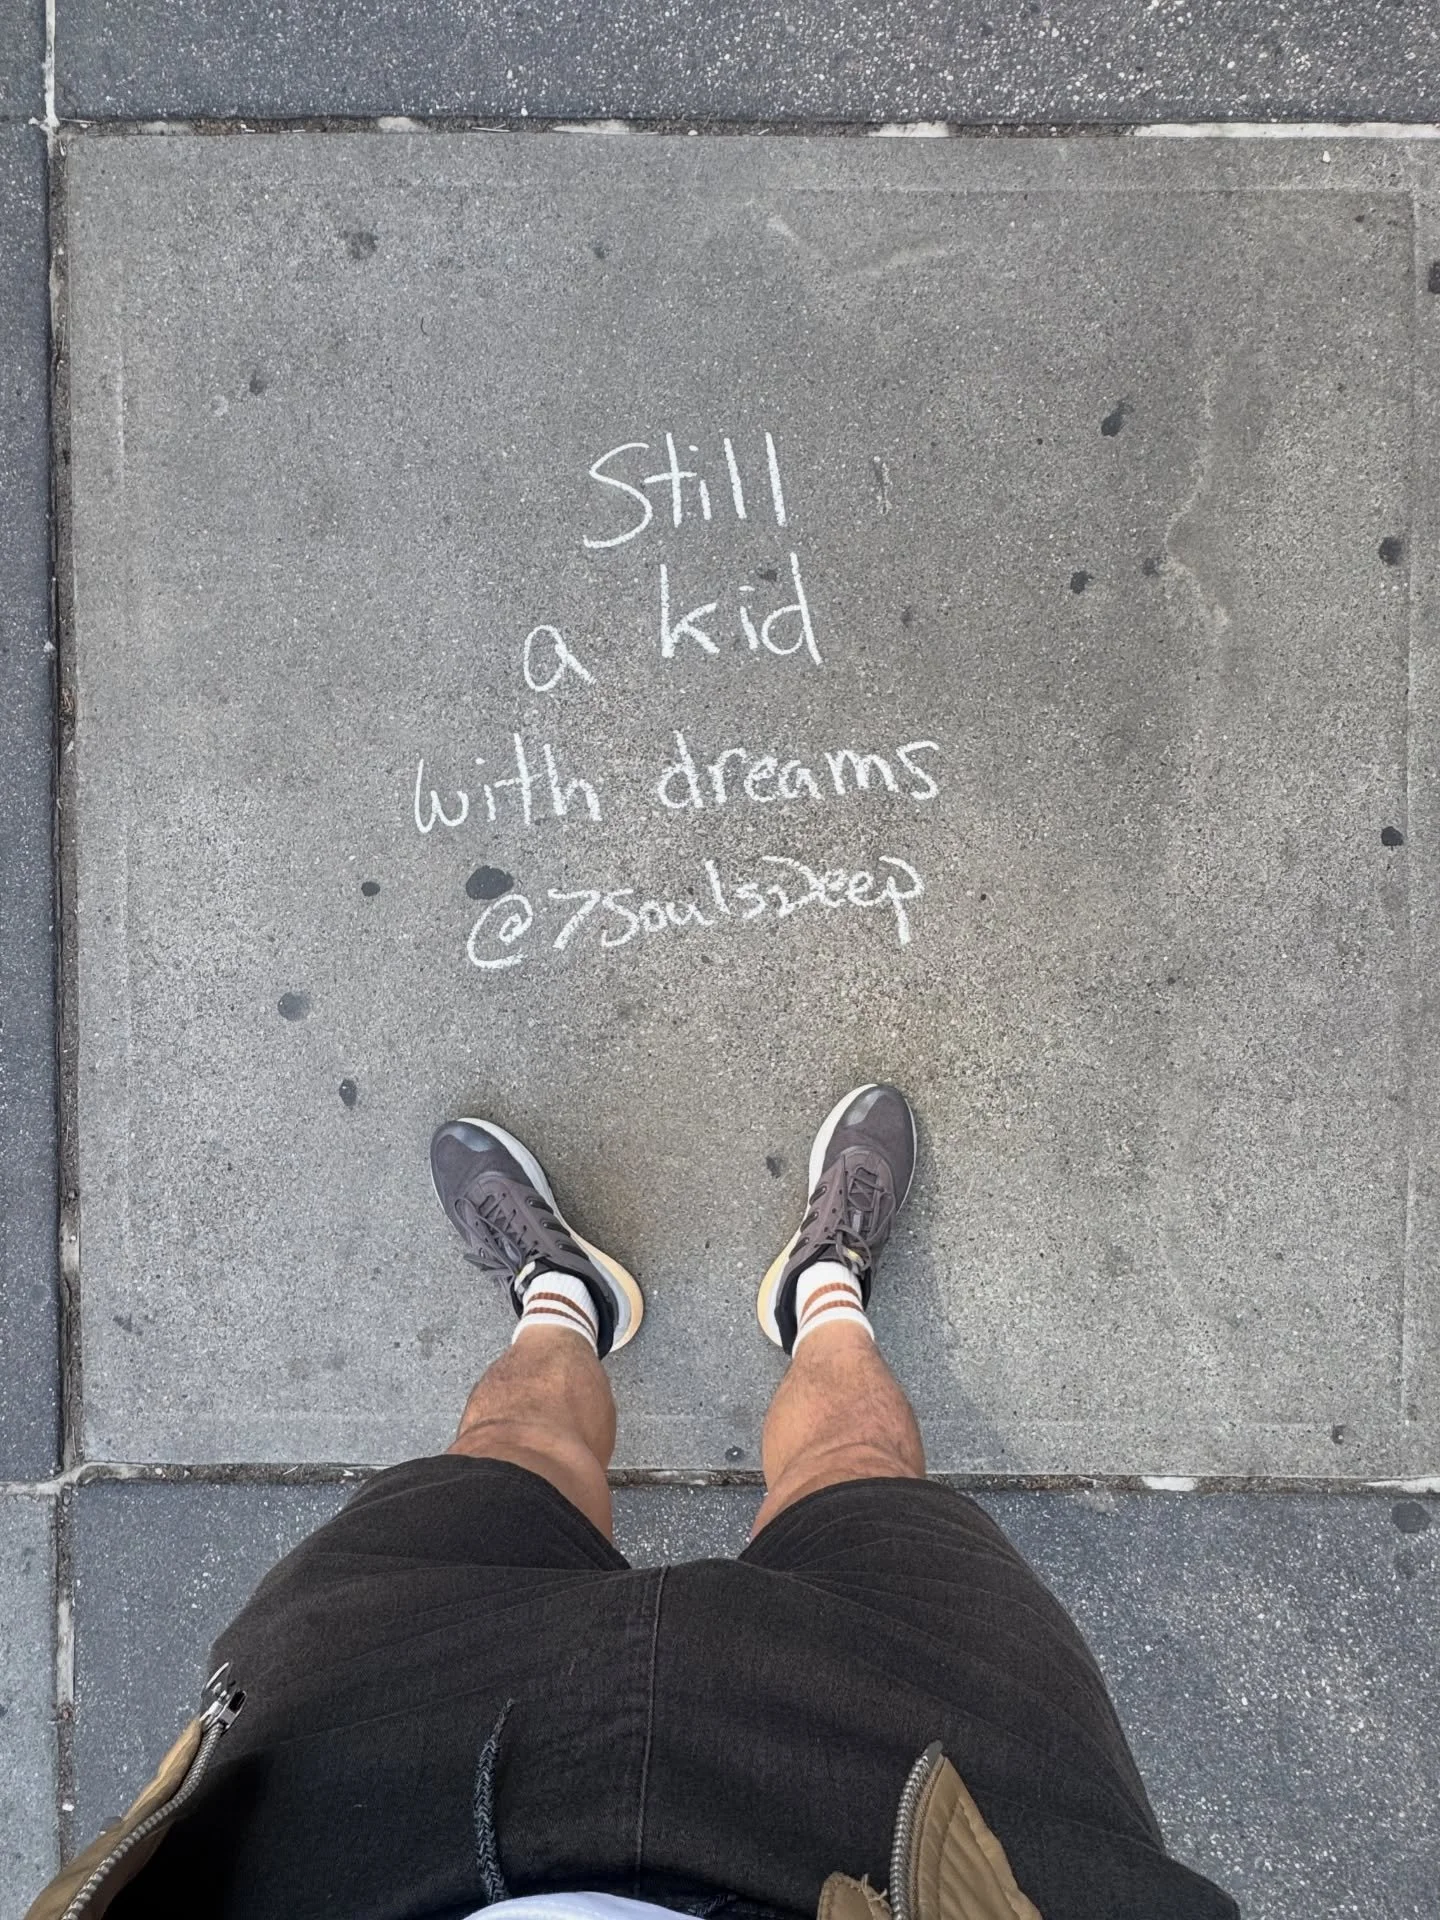 Still
a kid
with dreams
@7SoulsDeep